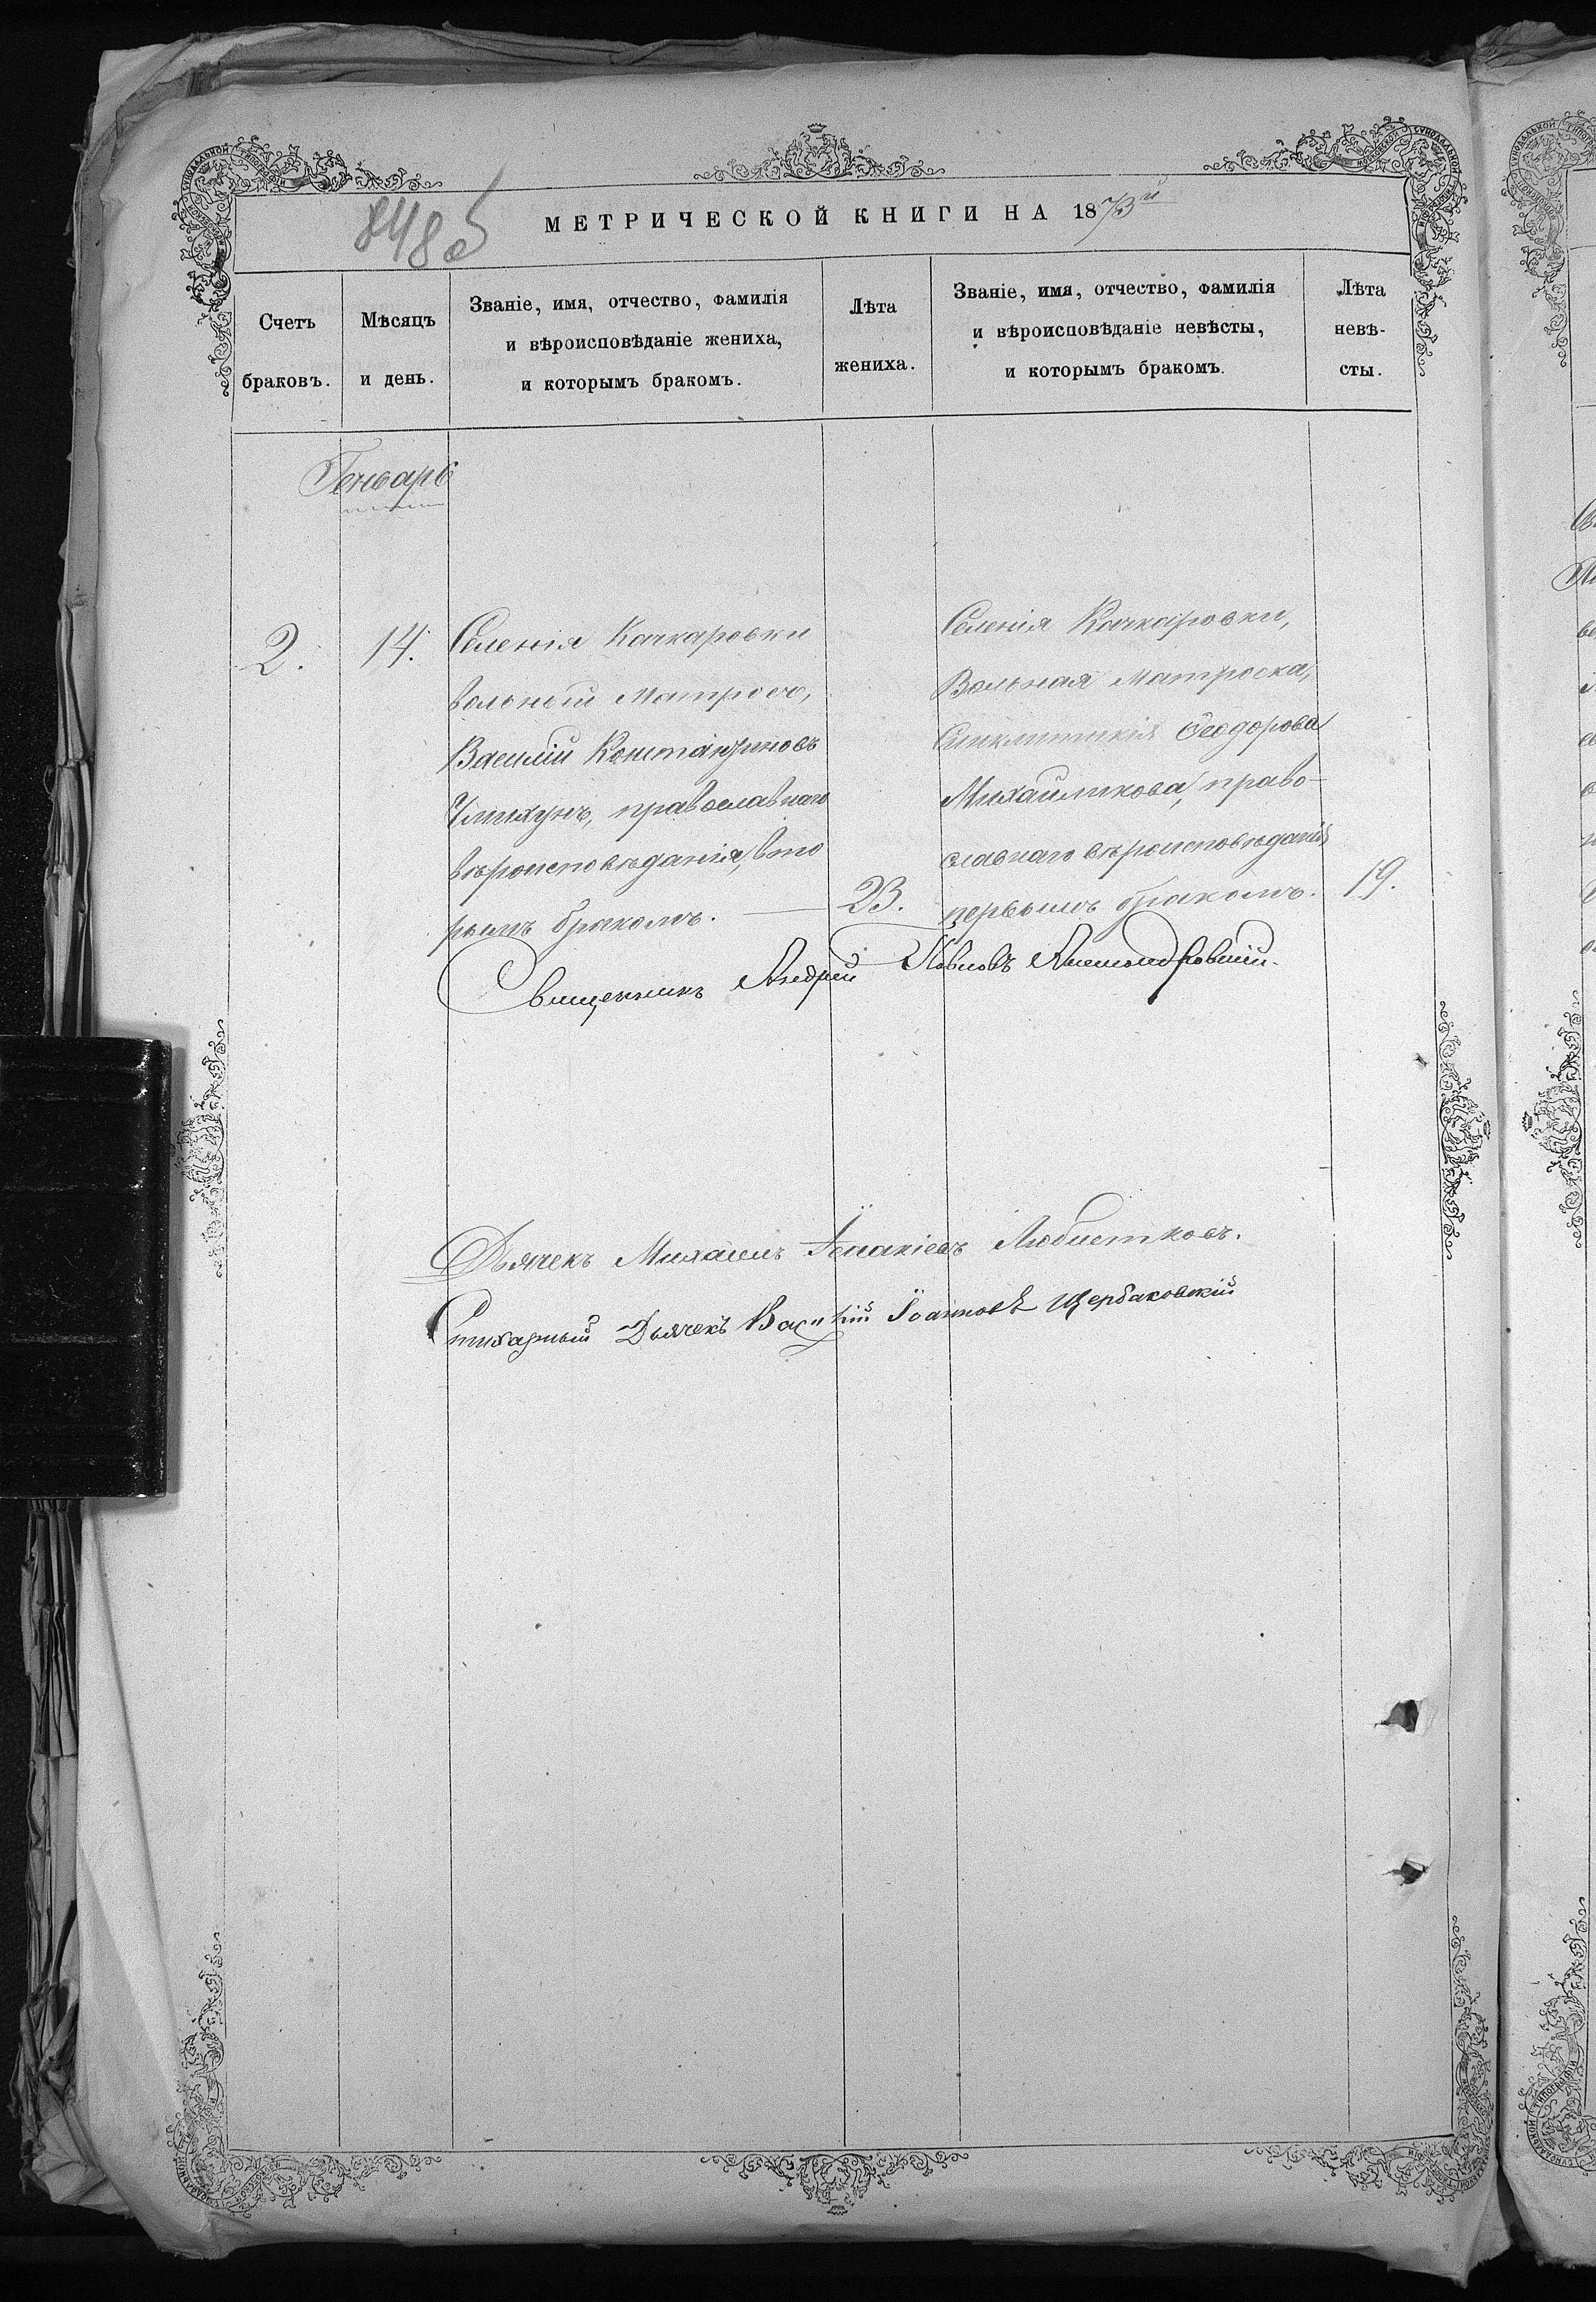 848об
МЕТРИЧЕСКОЙ КНИГИ НА 1873й
Счетъ браковъ.
Мѣсяцъ и день.
Званіе, имя, отчество, фамилія
и вѣроисповѣданіе жениха,
и которымъ бракомъ.
Лѣта жениха.
Званіе, имя, отчество, фамилія
и вѣроисповѣданіе невѣсты,
и которымъ бракомъ.
Лѣта невѣ-
сты.
Генварь
2.
14.
Селенія Качкаровки
вольный матросъ,
Василій Константиновъ
православнаго
вѣроисповѣданія, вто
рымъ бракомъ.
23.
Селенія Качкаровки,
Вольная матроска,
Синклитикія Ѳеодорова
Михайликова, право-
славнаго вѣроисповѣданія
первымъ бракомъ.
19.
Священникъ Андрей
Дьячекъ Михаилъ Любистковъ.
Стихарный Дьячекъ Василій Іоанновъ Щербаковскій